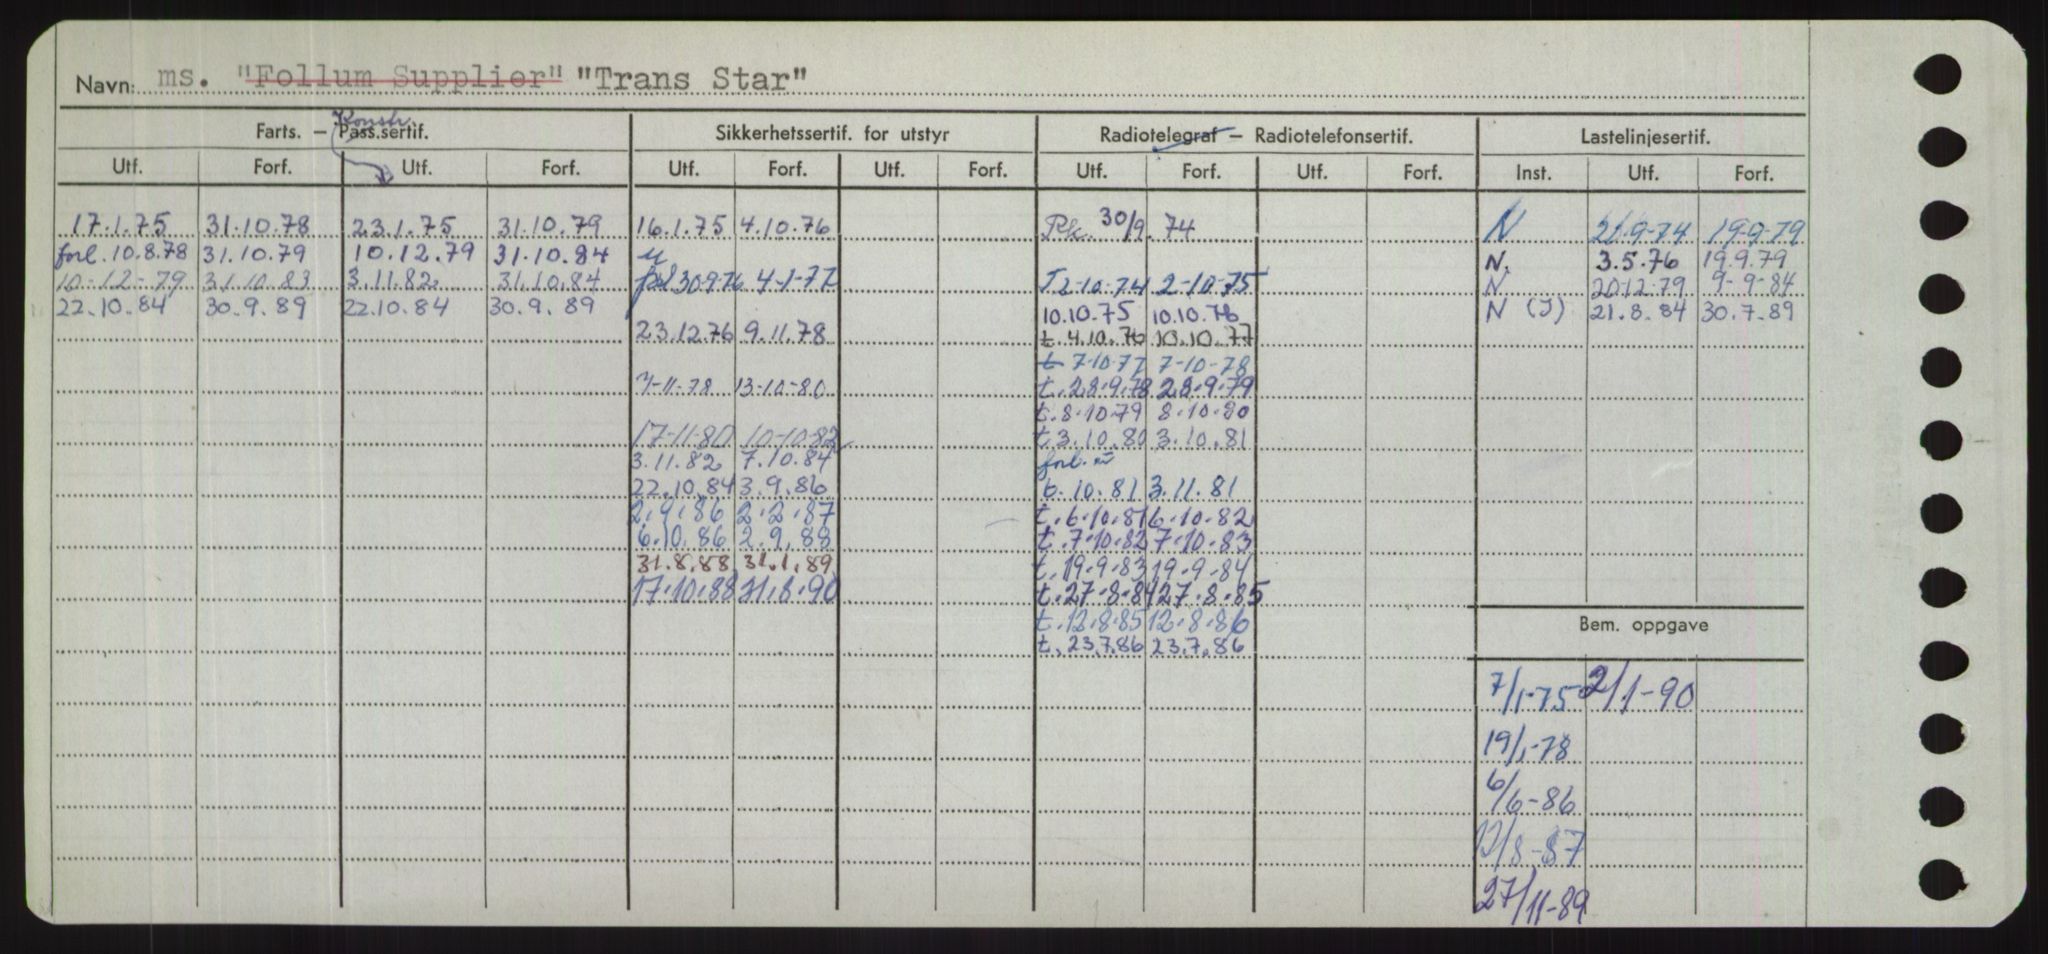 Navn: ms. "Follum Supplier" "Trans Star"
Konstr.
Farts. – Pass.sertif. Sikkerhetssertif. for utstyr Radiotelegraf – Radiotelefonsertif. Lastelinjesertif.
Utf. Forf. Utf. Forf. Utf. Forf. Utf. Forf. Utf. Forf. Utf. Forf. Inst. Utf. Forf.
17.1.75 31.10.78 23.1.75 31.10.79 16.1.75 4.10.76 Pk. 30/9. 74 N 9-74 19-9-79
forl. 10.8.78 31.10.79 10.12.79 31.10.84 N. 3.5.76 19.9.79
10-12-79 31.10.83 3.11.82 31.10.84 30-9-76 4-1-77 T2-10-74 2-10-75 N 20-12-79 9-9-84
22.10.84 30.9.89 22.10.84 30.9.89 10.10.75 10.10.76 N (I) 21.8.84 30.7.89
23.12.76 9.11.78 t. 4.10.76 10.10.77
t 7-10-77 7-10-78
7-11-78 13-10-80 t. 28.9.78 28.9.79
t. 8.10.79 8.10.80
17-11-80 10-10-82 t. 3.10.80 3.10.81
3.11.82 7.10.84 forl.
22.10.84 3.9.86 6.10.81 3.11.81
2.9.86 2.2.87 t. 6.10.81 6.10.82
6.10.86 2.9.88 t. 7.10.82 7.10.83
31.8.88 31.1.89 t. 19.9.83 19.9.84
17.10.88 31.8.90 t. 27.8.84 27.8.85
t. 12.8.85 12.8.86
t. 23.7.86 23.7.86
Bem. oppgave
7/1-75 2/1-90
19/1-78
6/6-86
12/8-87
27/11-89